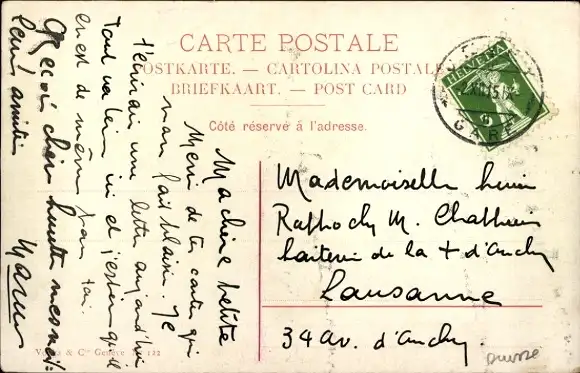 CARTE POSTALE
POSTKARTE. — CARTOLINA POSTALE
BRIEFKAART. — POST CARD
Côté réservé à l'adresse.
HELVETIA
GARE
Ma chère petite
Merci de ta carte qui
m'a fait plaisir. Je
t'écrirai une lettre aujourd'hui
Tout va bien ici et j'espère qu'il
en est de même pour toi.
Reçois chère Lucette mes meil:
leurs amitiés
Marius
Mademoiselle
M. Chatthuin
Laiterie de la + d'Ouchy
Lausanne
34 av. d'Ouchy.
& Cie Genève 122